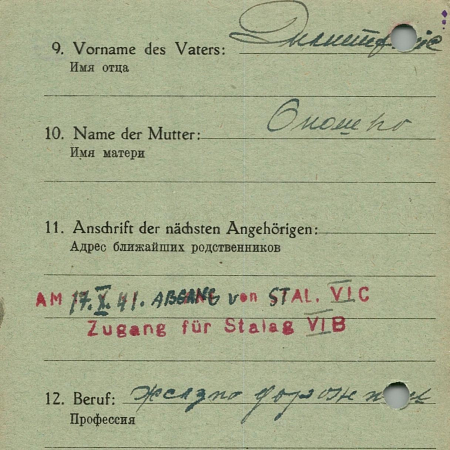 9. Vorname des Vaters:
Имя отца
10. Name der Mutter:
Имя матери
11. Anschrift der nächsten Angehörigen:
Адрес ближайших родственников
AM 17.X.41. ABGANG von STAL. VI C
Zugang für Stalag VI B
12. Beruf: железно дорожник
Профессия